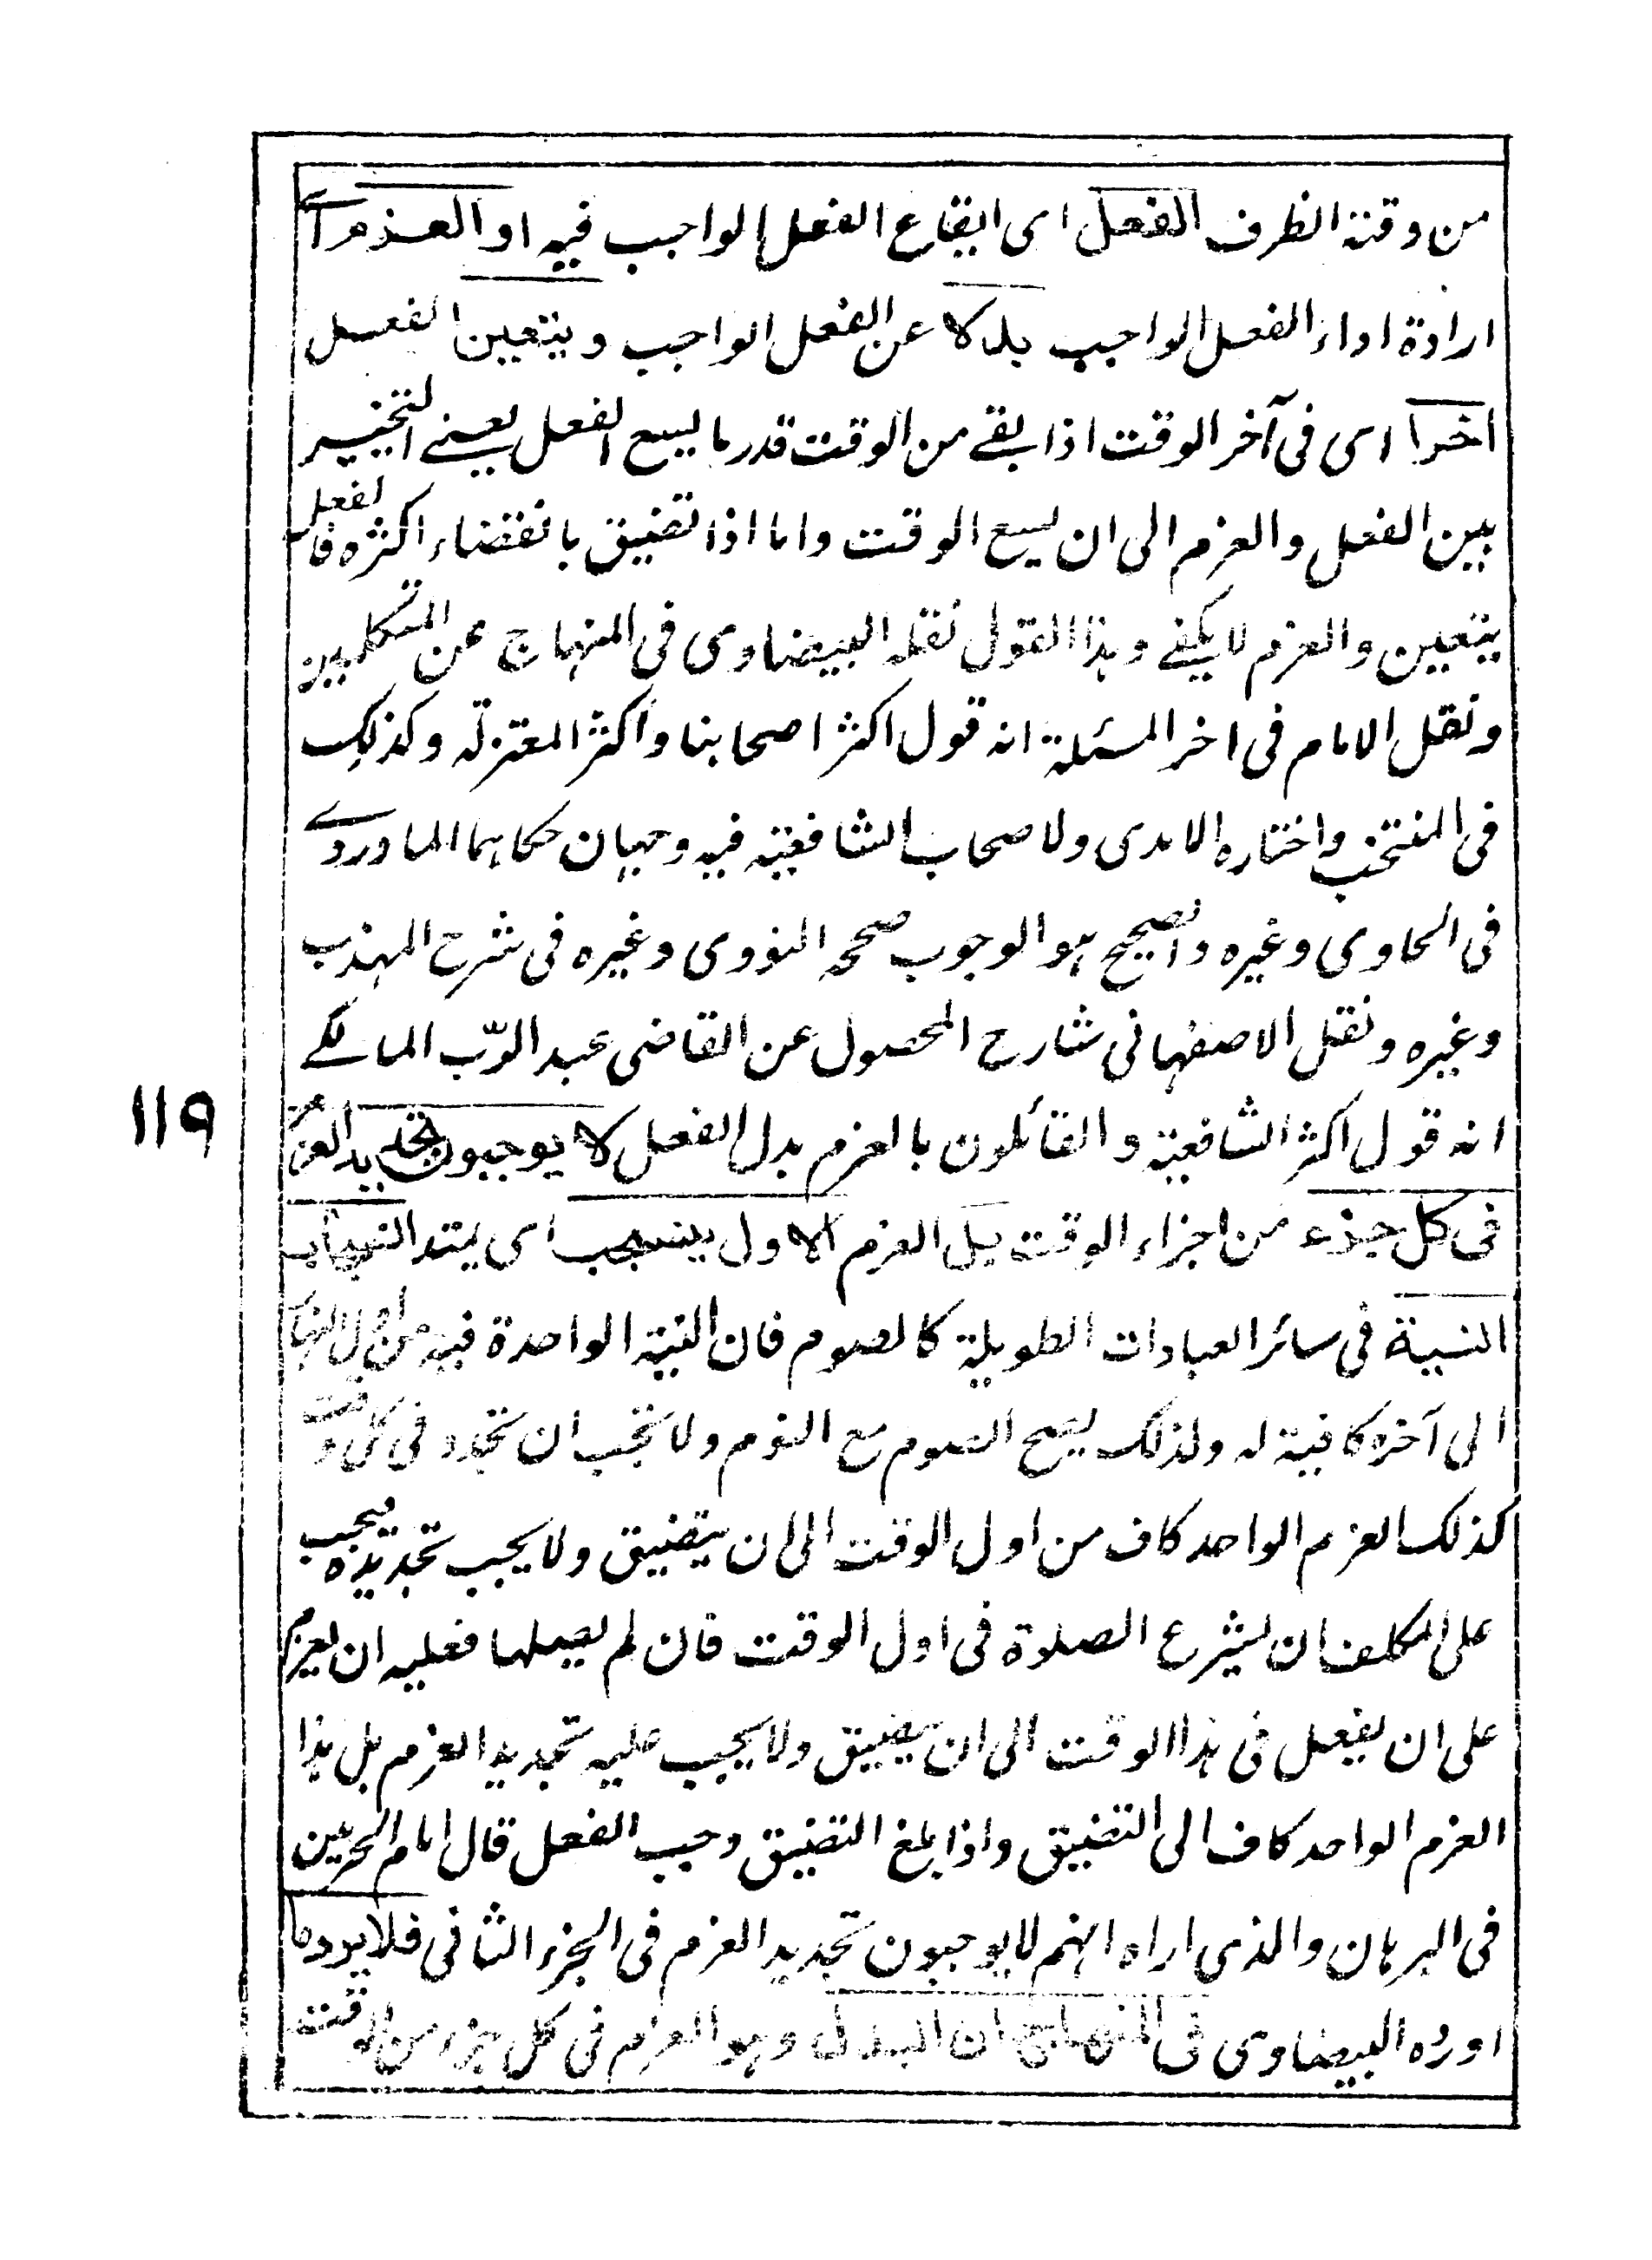 من وقتة الظرف الفعل اى ايقاع الفعل الواجب فيه او العزم اے
ارادة اداء الفعل الواجب بدلا عن الفعل الواجب ويتعين الفعل
اخرا اى فى آخر الوقت اذا بقے من الوقت قدر ما يسع الفعل يعنے التخيير
بين الفعل والعزم الى ان يسع الوقت واما اذا تضيق بانقضاء اكثره فالفعل
يتعين والعزم لا يكفے وهذا القول نقله البيضاوى فى المنهاج عن المتكلمين
ونقل الامام فى اخر المسئلة انه قول اكثر اصحابنا واكثر المعتزلة وكذلك
فى المنتخب واختاره الامدى ولاصحاب الشافعية فيه وجهان حكاهما الماوردے
فى الحاوى وغيره والصحيح هو الوجوب صححه النووى وغيره فى شرح المهذب
وغيره ونقل الاصفهانى شارح المحصول عن القاضى عبد الوّب المالكے
انه قول اكثر الشافعية والقائلون بالعزم بدل الفعل لا يوجبون تجديد العزم
١١٩
فى كل جزء من اجزاء الوقت بل العزم الاول ينسحب اى يمتد انسحاب
النية فى سائر العبادات الطويلة كالصوم فان النية الواحدة فيه من اول النهار
الى آخره كافية له ولذلك يصح الصوم مع النوم ولا تجب ان تجدد فى كل وقت
كذلك العزم الواحد كاف من اول الوقت الى ان يتضيق ولا يجب تجديده فيجب
على المكلف ان يشرع الصلوة فى اول الوقت فان لم يصلها فعليه ان يعزم
على ان يفعل فى هذا الوقت الى ان يضيق ولا يجب عليه تجديد العزم بل هذا
العزم الواحد كاف الى التضيق واذا بلغ التضيق وجب الفعل قال امام الحرمين
فى البرهان والذى اراه انهم لا يوجبون تجديد العزم فى الجزء الثانى فلا يرد ما
اورده البيضاوى فى المنهاج ان البدل وهو العزم فى كل جزء من الوقت